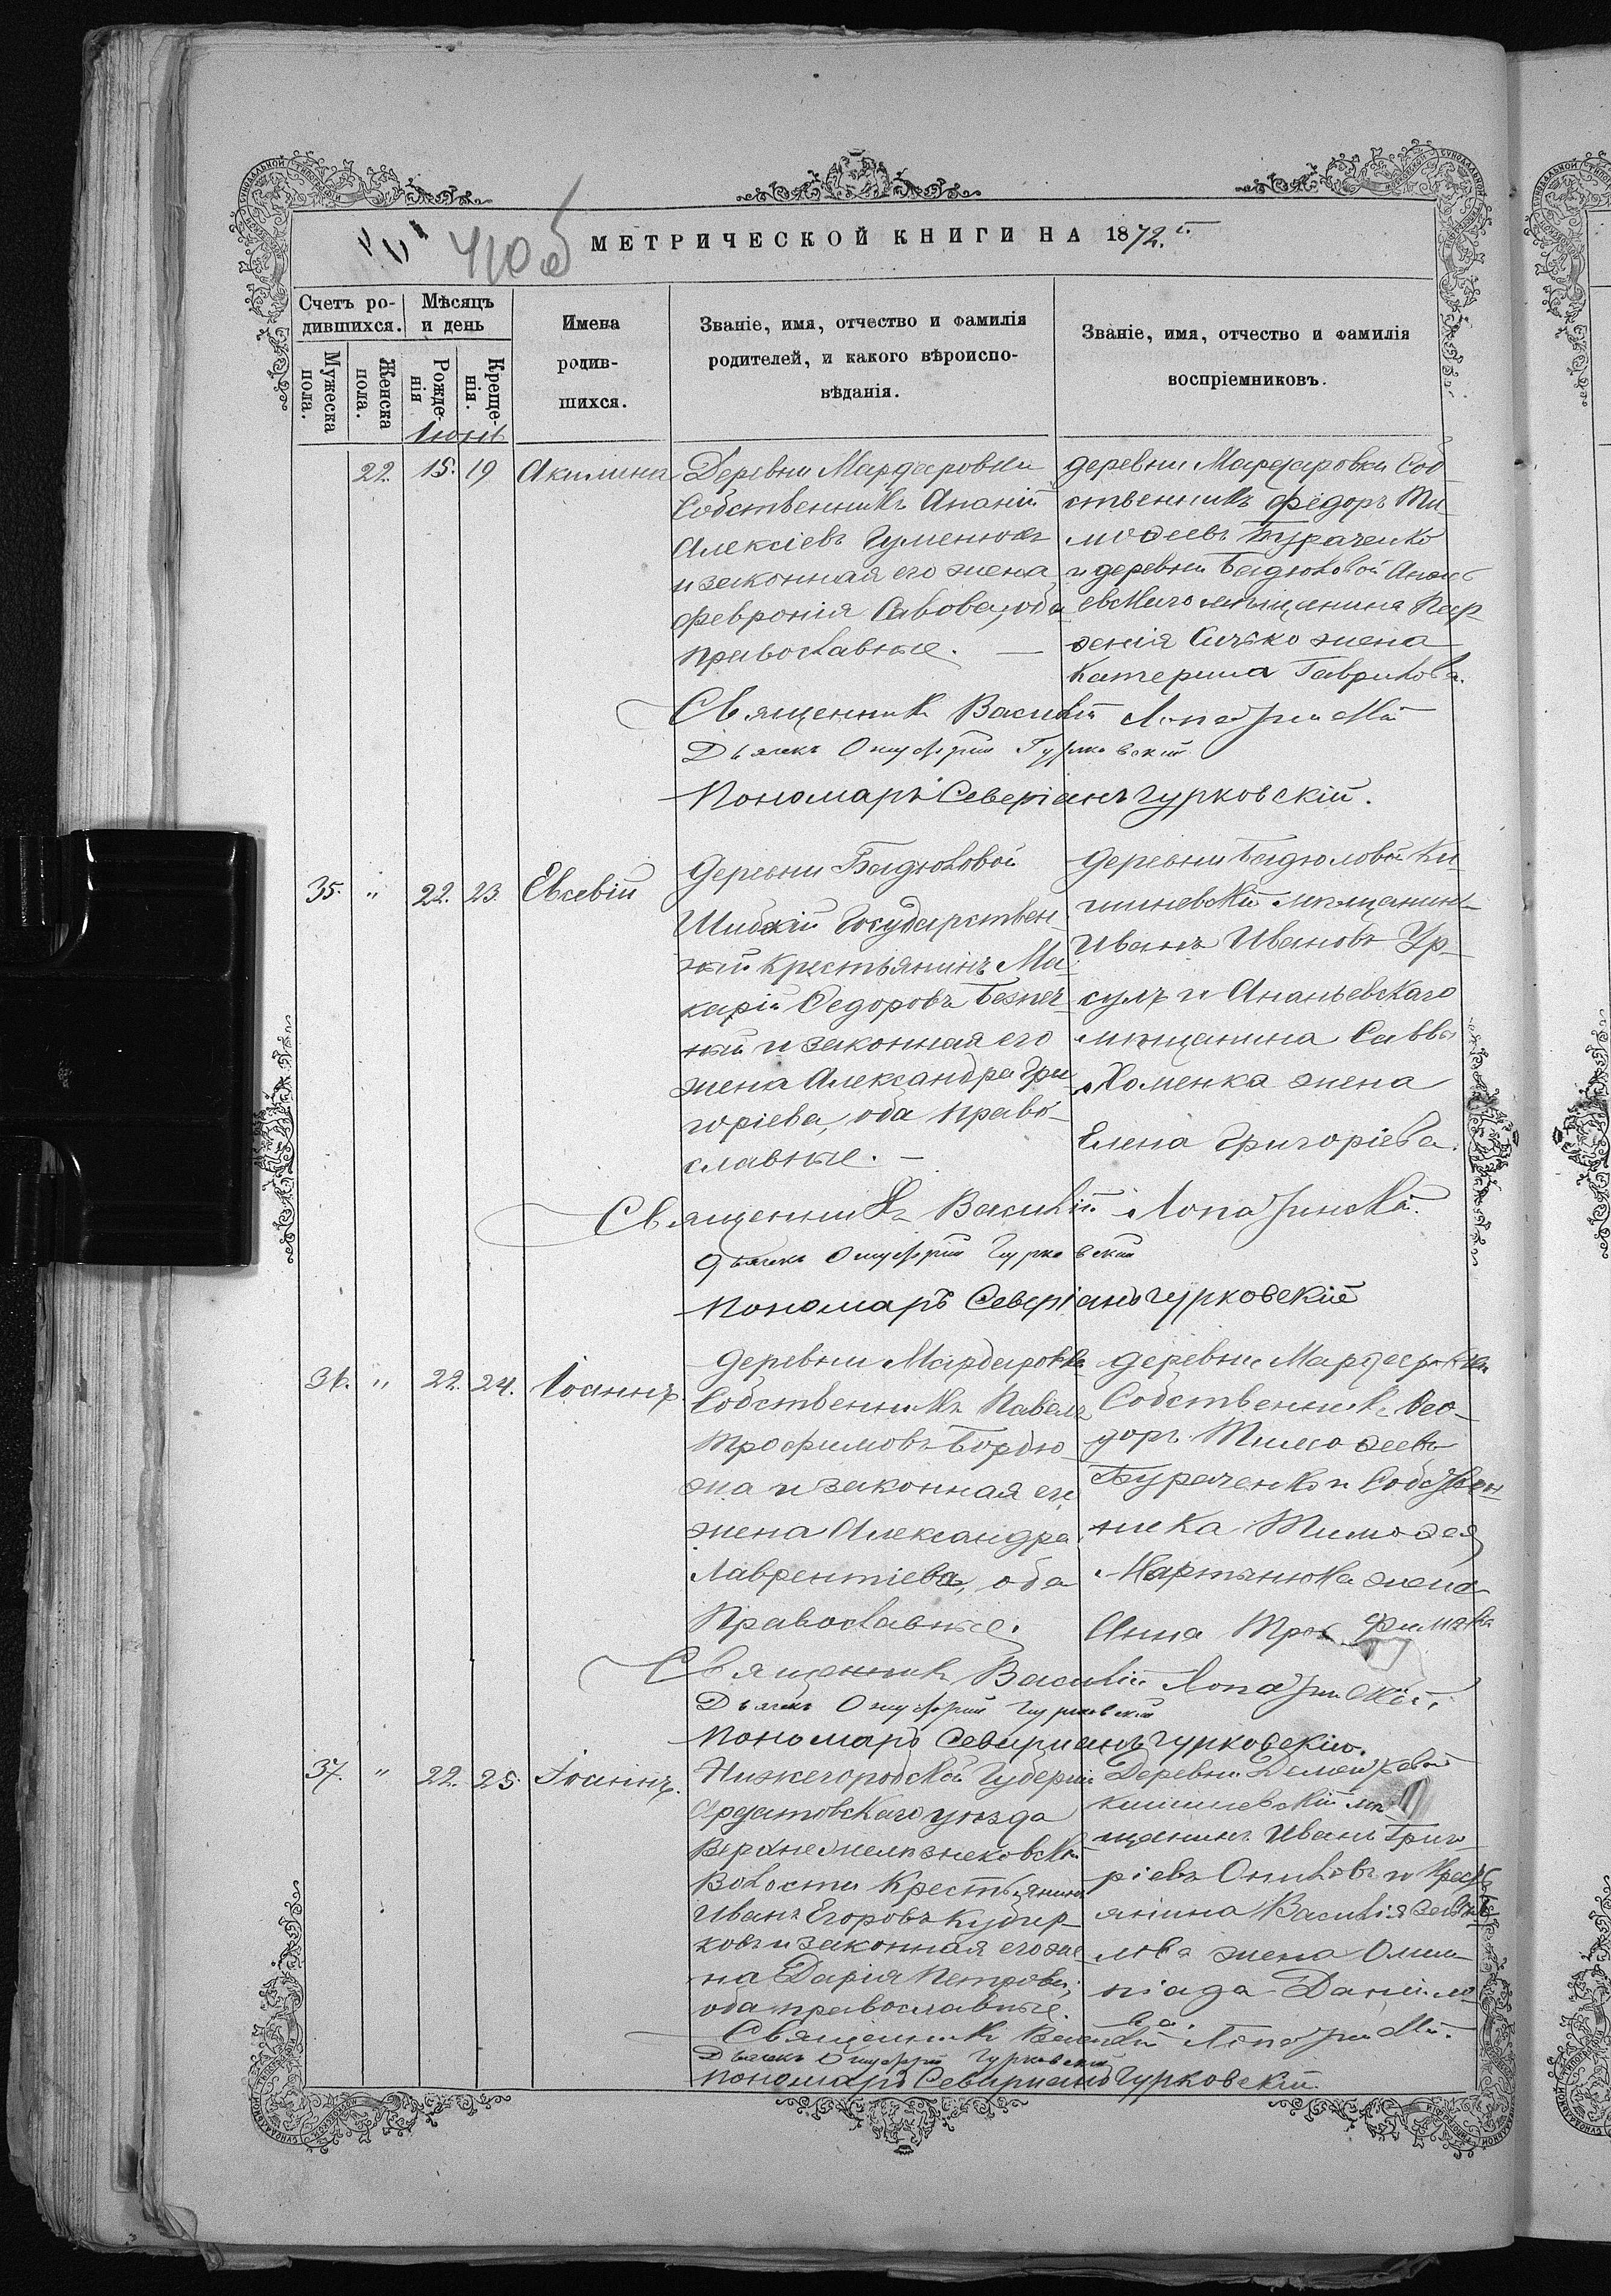 МЕТРИЧЕСКОЙ КНИГИ НА 1872.
Счетъ ро-
дившихся.
Мужеска пола.
Женска пола.
Мѣсяцъ
и день
Рожде-
нія
Креще-
нія.
Имена
родив-
шихся.
Званіе, имя, отчество и фамилія
родителей, и какого вѣроиспо-
вѣданія.
Званіе, имя, отчество и фамилія
воспріемниковъ.
Іюнь
22. 15. 19 Акилина
Деревни Мардаровки
Собственникъ Ананій
Алексіевъ Гуменюкъ
и законная его жена
Феvронія Савова, оба
православные. —
деревни Мардаровки Соб
ственникъ Фёдоръ Ти
моѳеевъ Бураченко
и деревни Бадюловой Анань
евскаго мѣщанина Пар
ѳенія Сичко жена
Катерина Гаврилова.
Священникъ Василій
Дьячекъ Онуфрій Гурковскій
Пономарь Северіанъ Гурковскій.
35. " 22. 23. Евсевій
Деревни Бадюловой
Государствен
ный крестьянинъ Ма
карій Ѳедоровъ
ный и законная его
жена Александра Гри
горіева, оба право-
славные. —
Деревни Бадюловой Ки
шиневскій мѣщанинъ
Иванъ Ивановъ Ур-
сулъ и Ананьевскаго
мѣщанина Саввы
Хоменка жена
Елена Григоріева.
Священникъ Василій
Дьячекъ Онуфрій Гурковскій
Пономарь Северіанъ Гурковскій
36. " 22. 24. Іоаннъ
Деревни Мардаровки
Собственникъ Павелъ
Трофимовъ Бордю
жа и законная его
жена Александра
Лаврентіева, оба
Православные.
деревни Мардаровки
Собственникъ Ѳео-
доръ Тимоѳеевъ
Бураченко и Собствен-
ника Тимоѳея
Мартынюка жена
Анна Трофимова
Священникъ Василій
Дьячекъ Онуфрій Гурковскій
Пономарь Севиріанъ Гурковскій.
37. " 22. 25. Іоаннъ.
Нижегородской Губерніи
Ардатовскаго уѣзда
Волости Крестьянинъ
Иванъ Егоровъ
ковъ и законная его же
на Дарія Петрова,
оба православные.
Деревни
кишиневскій мѣ
щанинъ Иванъ Григо
ріевъ и Кресть
янина Василія
лова жена Олим
піада Даніило
ва.
Священникъ Василій
Дьячекъ Онуфрій Гурковскій
Пономарь Севиріанъ Гурковскій